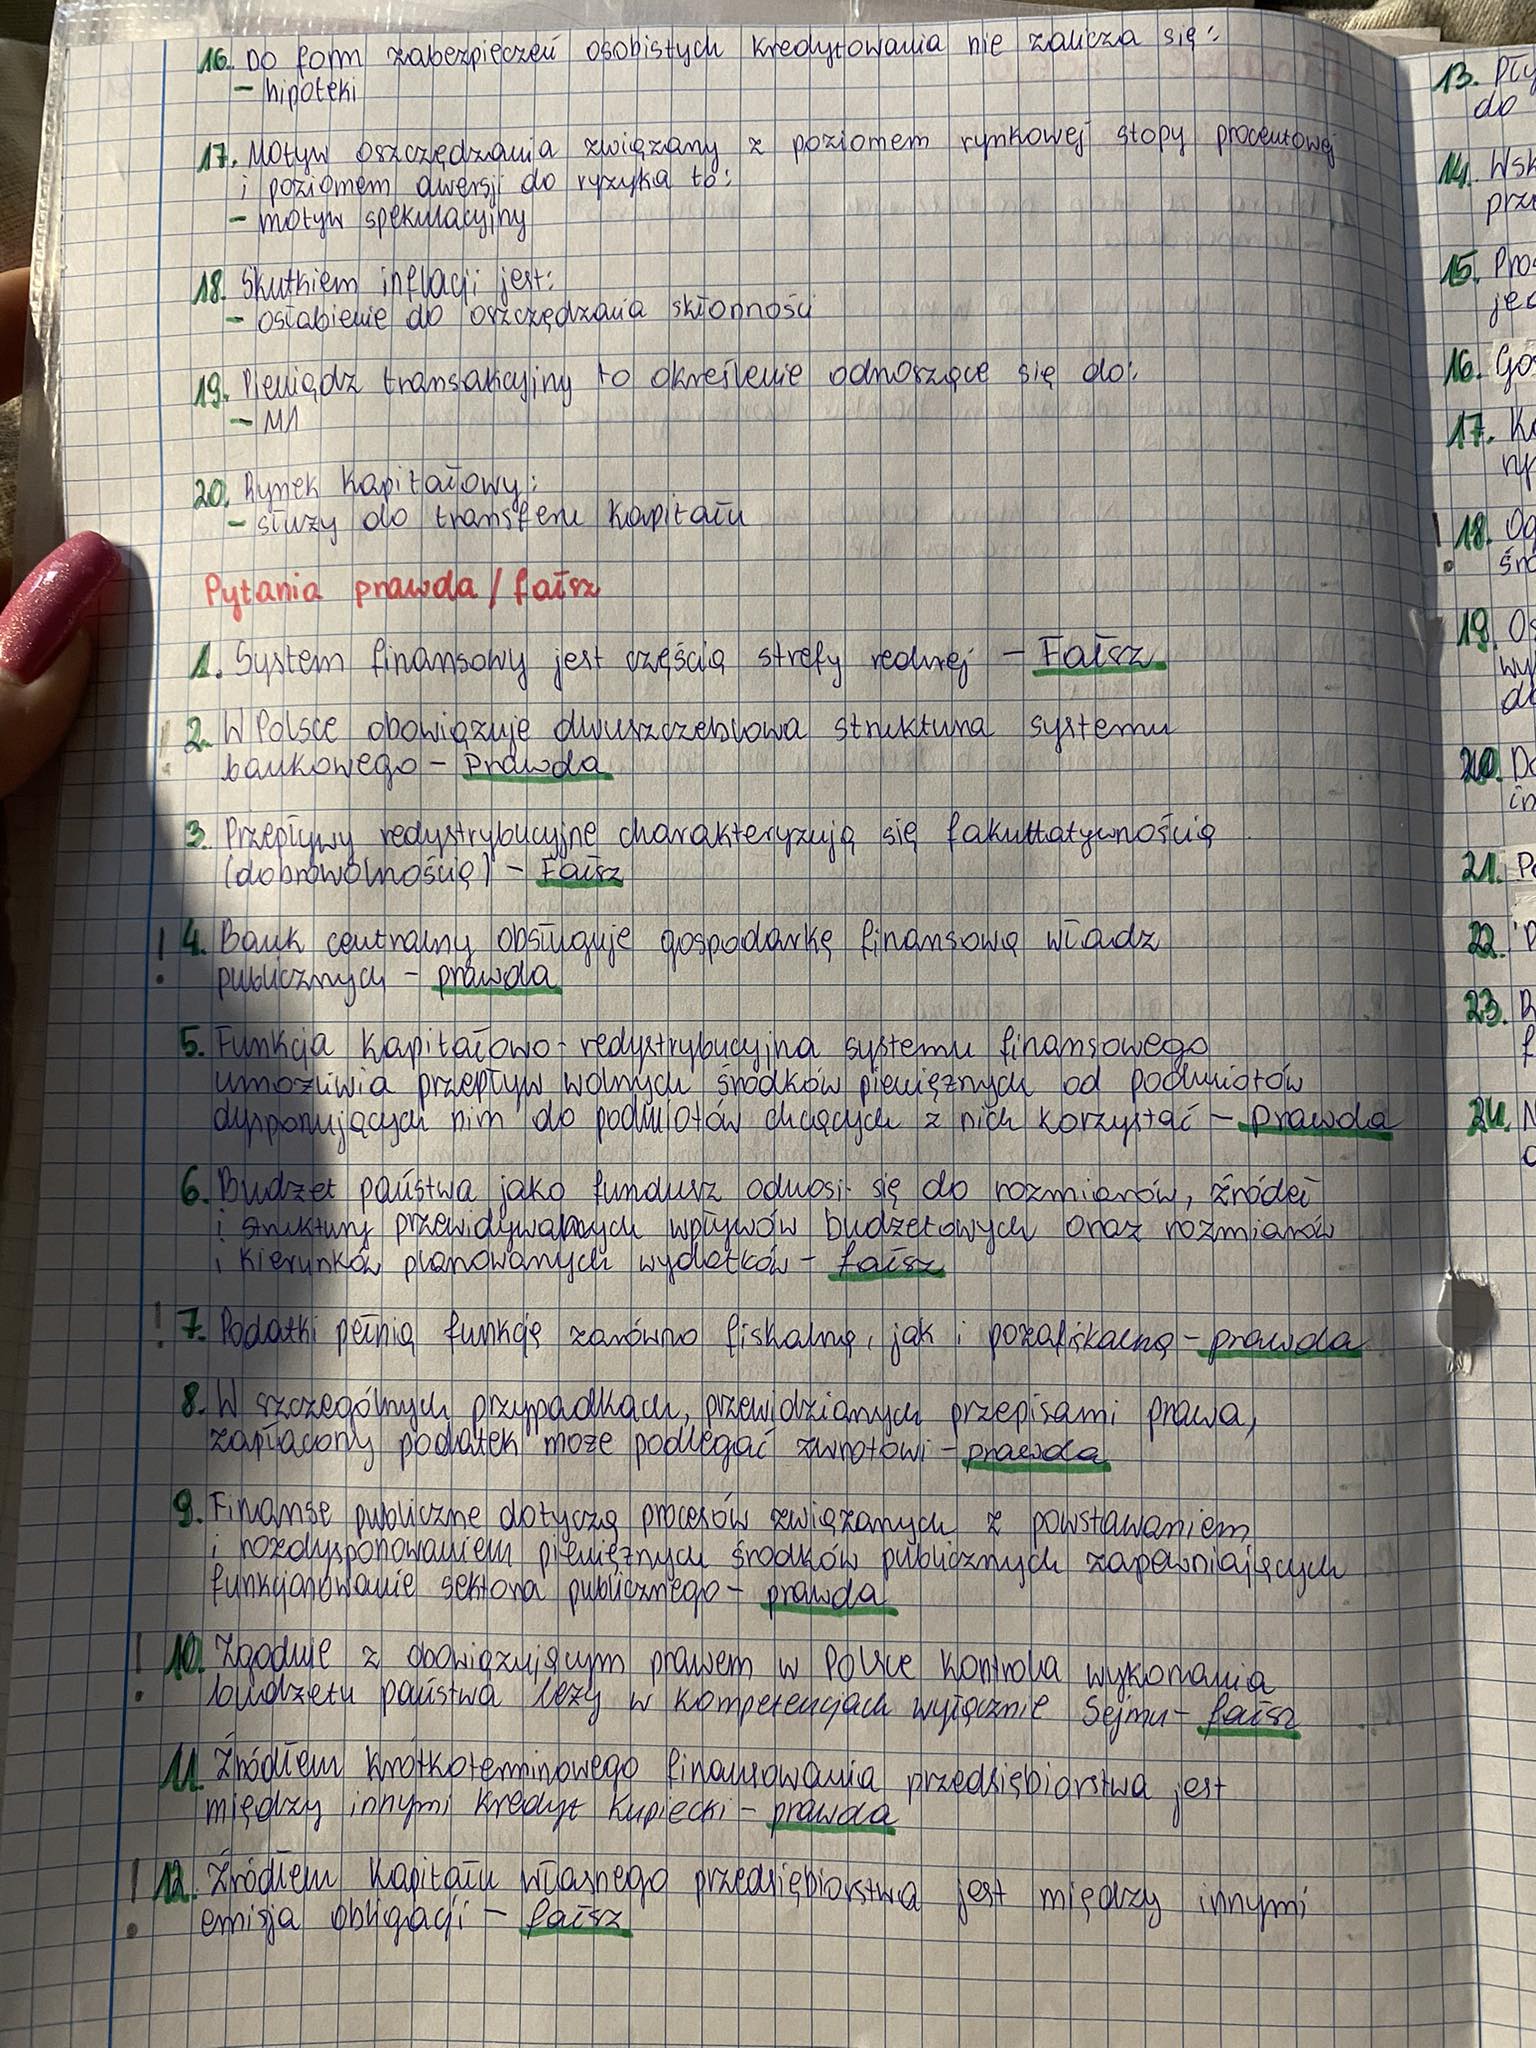 16. Do form zabezpieczeń osobistych kredytowania nie zalicza się:
- hipoteki
17. Motyw oszczędzania związany z poziomem rynkowej stopy procentowej
i poziomem awersji do ryzyka to:
- motyw spekulacyjny
18. Skutkiem inflacji jest:
- osłabienie do oszczędzania skłonności
19. Pieniądz transakcyjny to określenie odnoszące się do:
- M1
20. Rynek kapitałowy:
- służy do transferu kapitału
Pytania prawda / fałsz
1. System finansowy jest częścią strefy realnej - Fałsz
! 2. W Polsce obowiązuje dwuszczeblowa struktura systemu
bankowego - Prawda
3. Przepływy redystrybucyjne charakteryzują się fakultatywnością
(dobrowolnością) - Fałsz
! 4. Bank centralny obsługuje gospodarkę finansową władz
publicznych - prawda
5. Funkcja kapitałowo-redystrybucyjna systemu finansowego
umożliwia przepływ wolnych środków pieniężnych od podmiotów
dysponujących nim do podmiotów chcących z nich korzystać - Prawda
6. Budżet państwa jako fundusz odnosi się do rozmiarów, źródeł
i struktury przewidywanych wpływów budżetowych oraz rozmiarów
i kierunków planowanych wydatków - fałsz
! 7. Podatki pełnią funkcję zarówno fiskalną, jak i pozafiskalną - prawda
8. W szczególnych przypadkach, przewidzianych przepisami prawa,
zapłacony podatek może podlegać zwrotowi - prawda
9. Finanse publiczne dotyczą procesów związanych z powstawaniem
i rozdysponowaniem pieniężnych środków publicznych zapewniających
funkcjonowanie sektora publicznego - prawda
! 10. Zgodnie z obowiązującym prawem w Polsce kontrola wykonania
budżetu państwa leży w kompetencjach wyłącznie Sejmu - fałsz
11. Źródłem krótkoterminowego finansowania przedsiębiorstwa jest
między innymi kredyt kupiecki - prawda
! 12. Źródłem kapitału własnego przedsiębiorstwa jest między innymi
emisja obligacji - fałsz
13.
do
14.
15.
16.
17.
! 18.
19.
20.
21.
22.
23.
24.